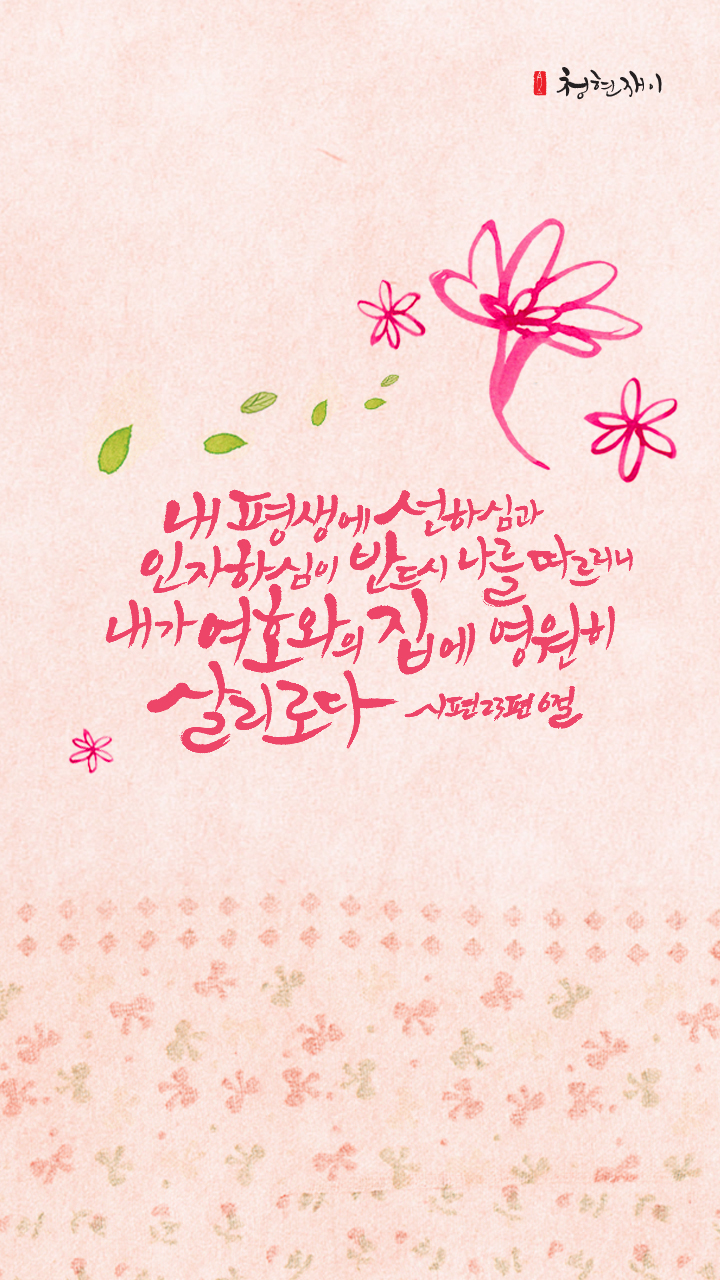 청현재이
내 평생에 선하심과
인자하심이 반드시 나를 따르리니
내가 여호와의 집에 영원히
살리로다 시편23편 6절